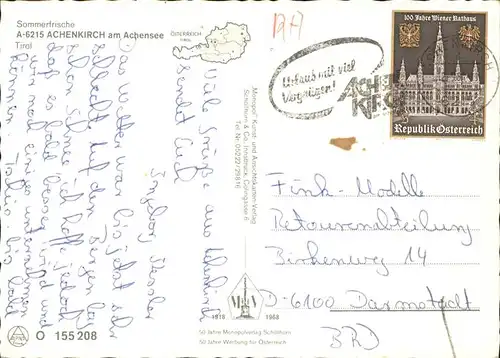 Sommerfrische
A-6215 ACHENKIRCH am Achensee
Tirol
ÖSTERREICH
TIROL
Viele Grüße aus Achenkirch
sendet Euch
Ingeborg
Das Wetter war bis jetzt sehr
schlecht auf den Bergen lag
schon Schnee. Ich hoffe jedoch
daß es bald besser wird und
wir noch einiges unternehmen
können. Tschüs bis bald
"Monopol" Kunst- und Ansichtskarten-Verlag
Schöllhorn & Co., Innsbruck, Göringstraße 6
Tel. Nr. 05222/29816
100 Jahre Wiener Rathaus
Republik Österreich
Urlaub mit viel
Vergnügen!
ACHEN
KIRCH
Fink-Modelle
Retourenabteilung
Birkenweg 14
D-6100 Darmstadt
BRD
1918 1968
50 Jahre Monopolverlag Schöllhorn
50 Jahre Werbung für Österreich
O 155208